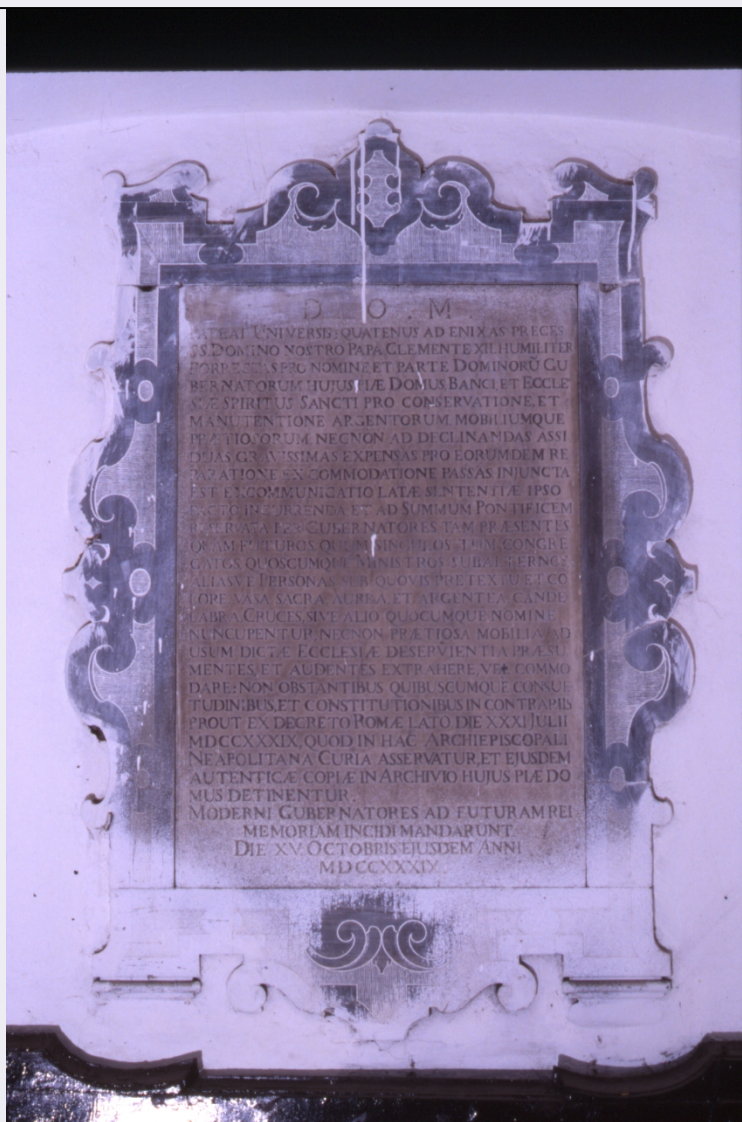 D. O. M.
UNIVERSIS, QUATENUS AD ENIXAS PRECES
SS. DOMINO NOSTRO PAPA CLEMENTE XII. HUMILITER
PRO NOMINE ET PARTE DOMINORŪ GU
BERNATORUM HUJUS PIÆ DOMUS BANCI, ET ECCLE
SIÆ SPIRITUS SANCTI PRO CONSERVATIONE, ET
MANUTENTIONE ARGENTORUM MOBILIUMQUE
NECNON AD DECLINANDAS ASSI
DUAS GRAVISSIMAS EXPENSAS PRO EORUMDEM RE
EX COMMODATIONE PASSAS INJUNCTA
EST EXCOMMUNICATIO LATÆ SENTENTIÆ IPSO
FACTO INCURRENDA ET AD SUMMUM PONTIFICEM
GUBERNATORES TAM PRÆSENTES
QUAM FUTUROS SINGULOS CONGRE
GATOS QUOSCUMQUE MINISTROS SUBALTERNOS
ALIASVE PERSONAS SUB QUOVIS PRETEXTU ET CO
LORE VASA SACRA, AUREA ET ARGENTEA, CANDE
LABRA, CRUCES, SIVE ALIO QUOCUMQUE NOMINE
NUNCUPENTUR, NECNON PRÆTIOSA MOBILIA AD
USUM DICTÆ ECCLESIÆ DESERVIENTIA PRÆSU
MENTES, ET AUDENTES EXTRAHERE, VEL COMMO
DARE: NON OBSTANTIBUS QUIBUSCUMQUE CONSUE
TUDINIBUS, ET CONSTITUTIONIBUS IN CONTRARIIS
PROUT EX DECRETO ROMÆ LATO DIE XXXI JULII
MDCCXXXIX, QUOD IN HAC ARCHIEPISCOPALI
NEAPOLITANA CURIA ASSERVATUR, ET EJUSDEM
AUTENTICÆ COPIÆ IN ARCHIVIO HUJUS PIÆ DO
MUS DETINENTUR.
MODERNI GUBERNATORES AD FUTURAM REI
MEMORIAM INCIDI MANDARUNT
DIE XV. OCTOBRIS EJUSDEM ANNI
MDCCXXXIX.